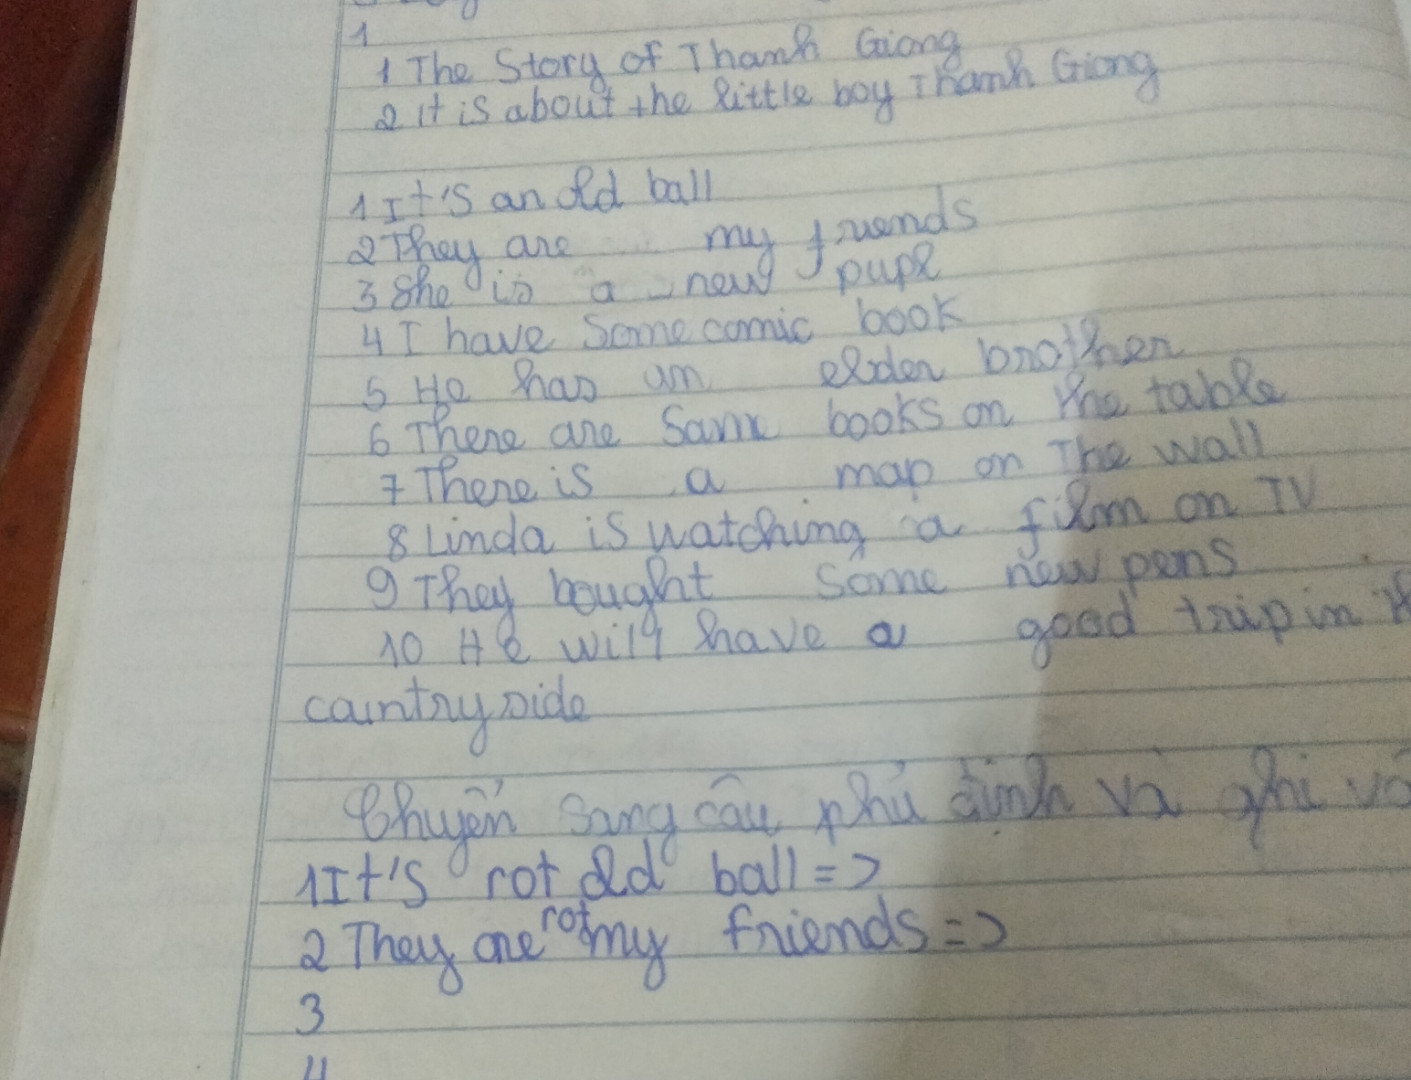 1
1 The Story of Thanh Giong
2 It is about the little boy Thanh Giong
1 It's an old ball
2 They are my friends
3 She is a new pupl
4 I have some comic book
5 He has an elder brother
6 There are some books on the table
7 There is a map on The wall
8 Linda is watching a film on TV
9 They bought some new pens
10 He will have a good trip in
countryside
Chuyển sang câu phủ định và ghi
1 It's not old ball =>
2 They are not my friends =>
3
4